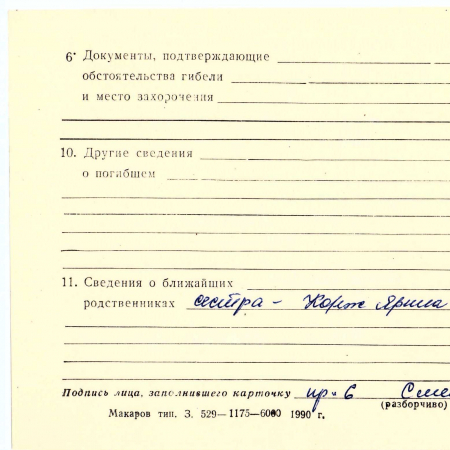 6· Документы, подтверждающие
обстоятельства гибели
и место захорочения
10. Другие сведения
о погибшем
11. Сведения о ближайших
родственниках сестра – Корж Ярина
Подпись лица, заполнившего карточку пр-6 Сме
(разборчиво)
Макаров тип. З. 529—1175—6000 1990 г.